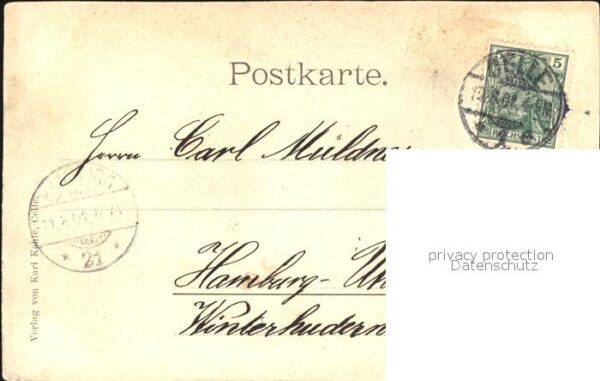 Postkarte.
5
REICHSPOST
CELLE
Herrn Carl Müldne
Hamburg-
Winterhudern
21
Verlag von Karl Kehle, Celle
privacy protection
Datenschutz